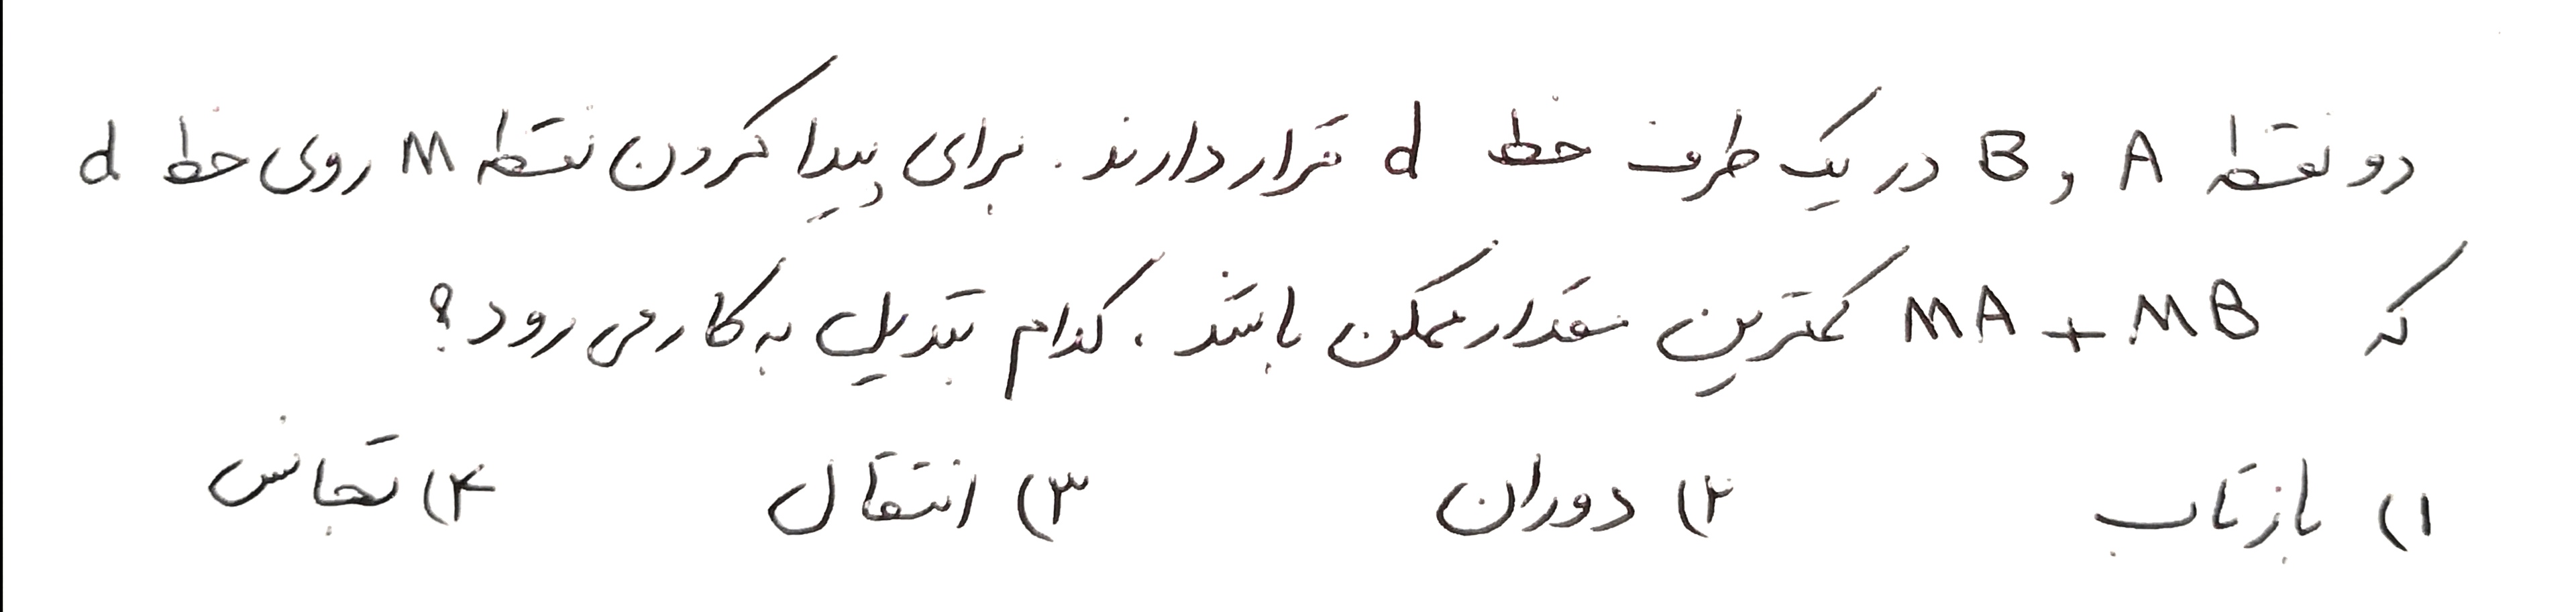 دو نقطه A و B در یک طرف خط d قرار دارند. برای پیدا کردن نقطه M روی خط d
که MA + MB کمترین مقدار ممکن باشد، کدام تبدیل به کار می رود؟
۱) بازتاب ۲) دوران ۳) انتقال ۴) تجانس